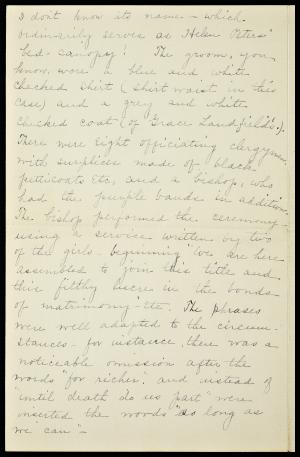 I don't know its name - which
ordinarily serves as Helen Peters'
bed-canopy! The groom, you
know, wore a blue and white
checked shirt (shirt waist in this
case) and a grey and white
checked coat (of Grace Landfield's).
There were eight officiating clergymen,
with surplices made of black
petticoats etc, and a bishop, who
had the purple bands in addition.
The bishop performed the ceremony -
using a service written by two
of the girls - beginning "we are here
assembled to join this title and
this filthy lucre in the bonds
of matrimony" - etc. The phrases
were well adapted to the circum-
stances - for instance, there was a
noticeable omission after the
words "for richer", and instead of
"until death do us part" were
inserted the words "as long as
we can" -